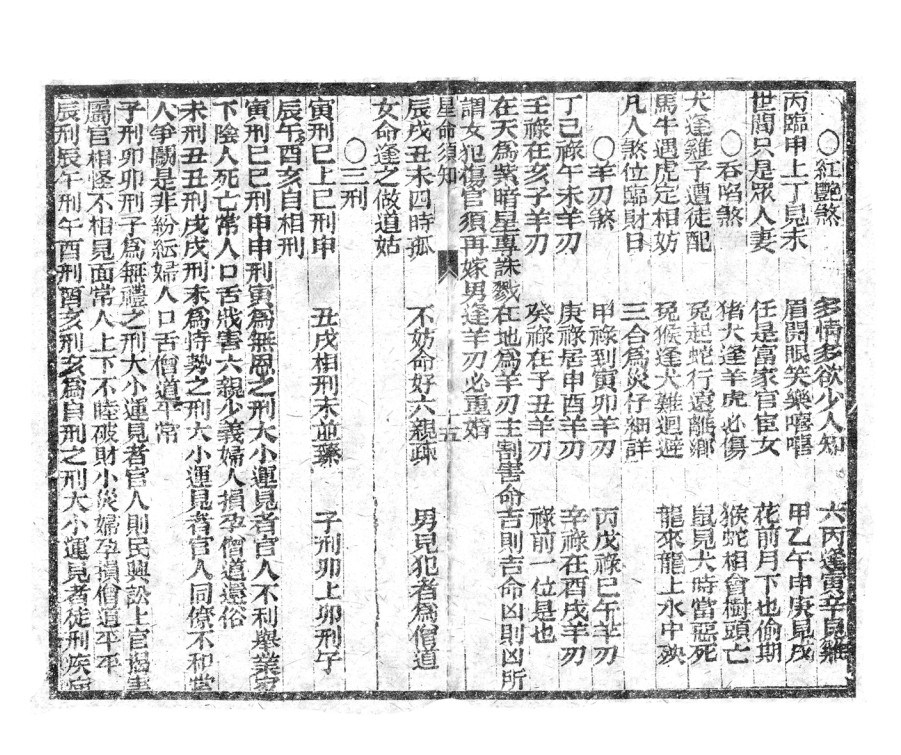 ○紅艷煞　多情多欲少人知　六丙逢寅辛見雞
丙臨申上丁見未　眉開眼笑樂嘻嘻　甲乙午申庚見戌
世間只是眾人妻　任是富家官臣女　花前月下也偷期
○吞啗煞　猪犬逢羊虎必傷　猴蛇相會樹頭亡
犬逢雞子遭徒配　兔起蛇行遠離鄉　鼠見犬時當惡死
馬牛遇虎定相妨　兔猴逢犬難迴避　龍來龍上水中殃
凡人煞位臨財日　三合為災仔細詳
○羊刃煞　甲祿到寅卯羊刃　丙戊祿巳午羊刃
丁己祿午未羊刃　庚祿居申酉羊刃　辛祿在酉戌羊刃
壬祿在亥子羊刃　癸祿在子丑羊刃　祿前一位是也
在天為紫暗星專誅戮在地為羊刃主割害命吉則吉命凶則凶所
謂女犯傷官須再嫁男逢羊刃必重婚
星命須知　十五
辰戌丑未四時孤　不妨命好六親疎　男兒犯者為僧道
女命逢之做道姑
○三刑
寅刑巳上巳刑申　丑戌相刑未並臻　子刑卯上卯刑子
辰午酉亥自相刑
寅刑巳巳刑申申刑寅為無恩之刑大小運見者官人不利舉業家
下陰人死亡常人口舌戕害六親少義婦人損孕僧道還俗
未刑丑丑刑戌戌刑未為恃勢之刑大小運見者官人同僚不和當
人爭鬬是非紛紜婦人口舌僧道平常
子刑卯卯刑子為無禮之刑大小運見者官人則民興訟上官
屬官相怪不相見面常人上下不睦破財小災婦孕損僧道平平
辰刑辰午刑午酉刑酉亥刑亥為自刑之刑大小運見者徒刑疾